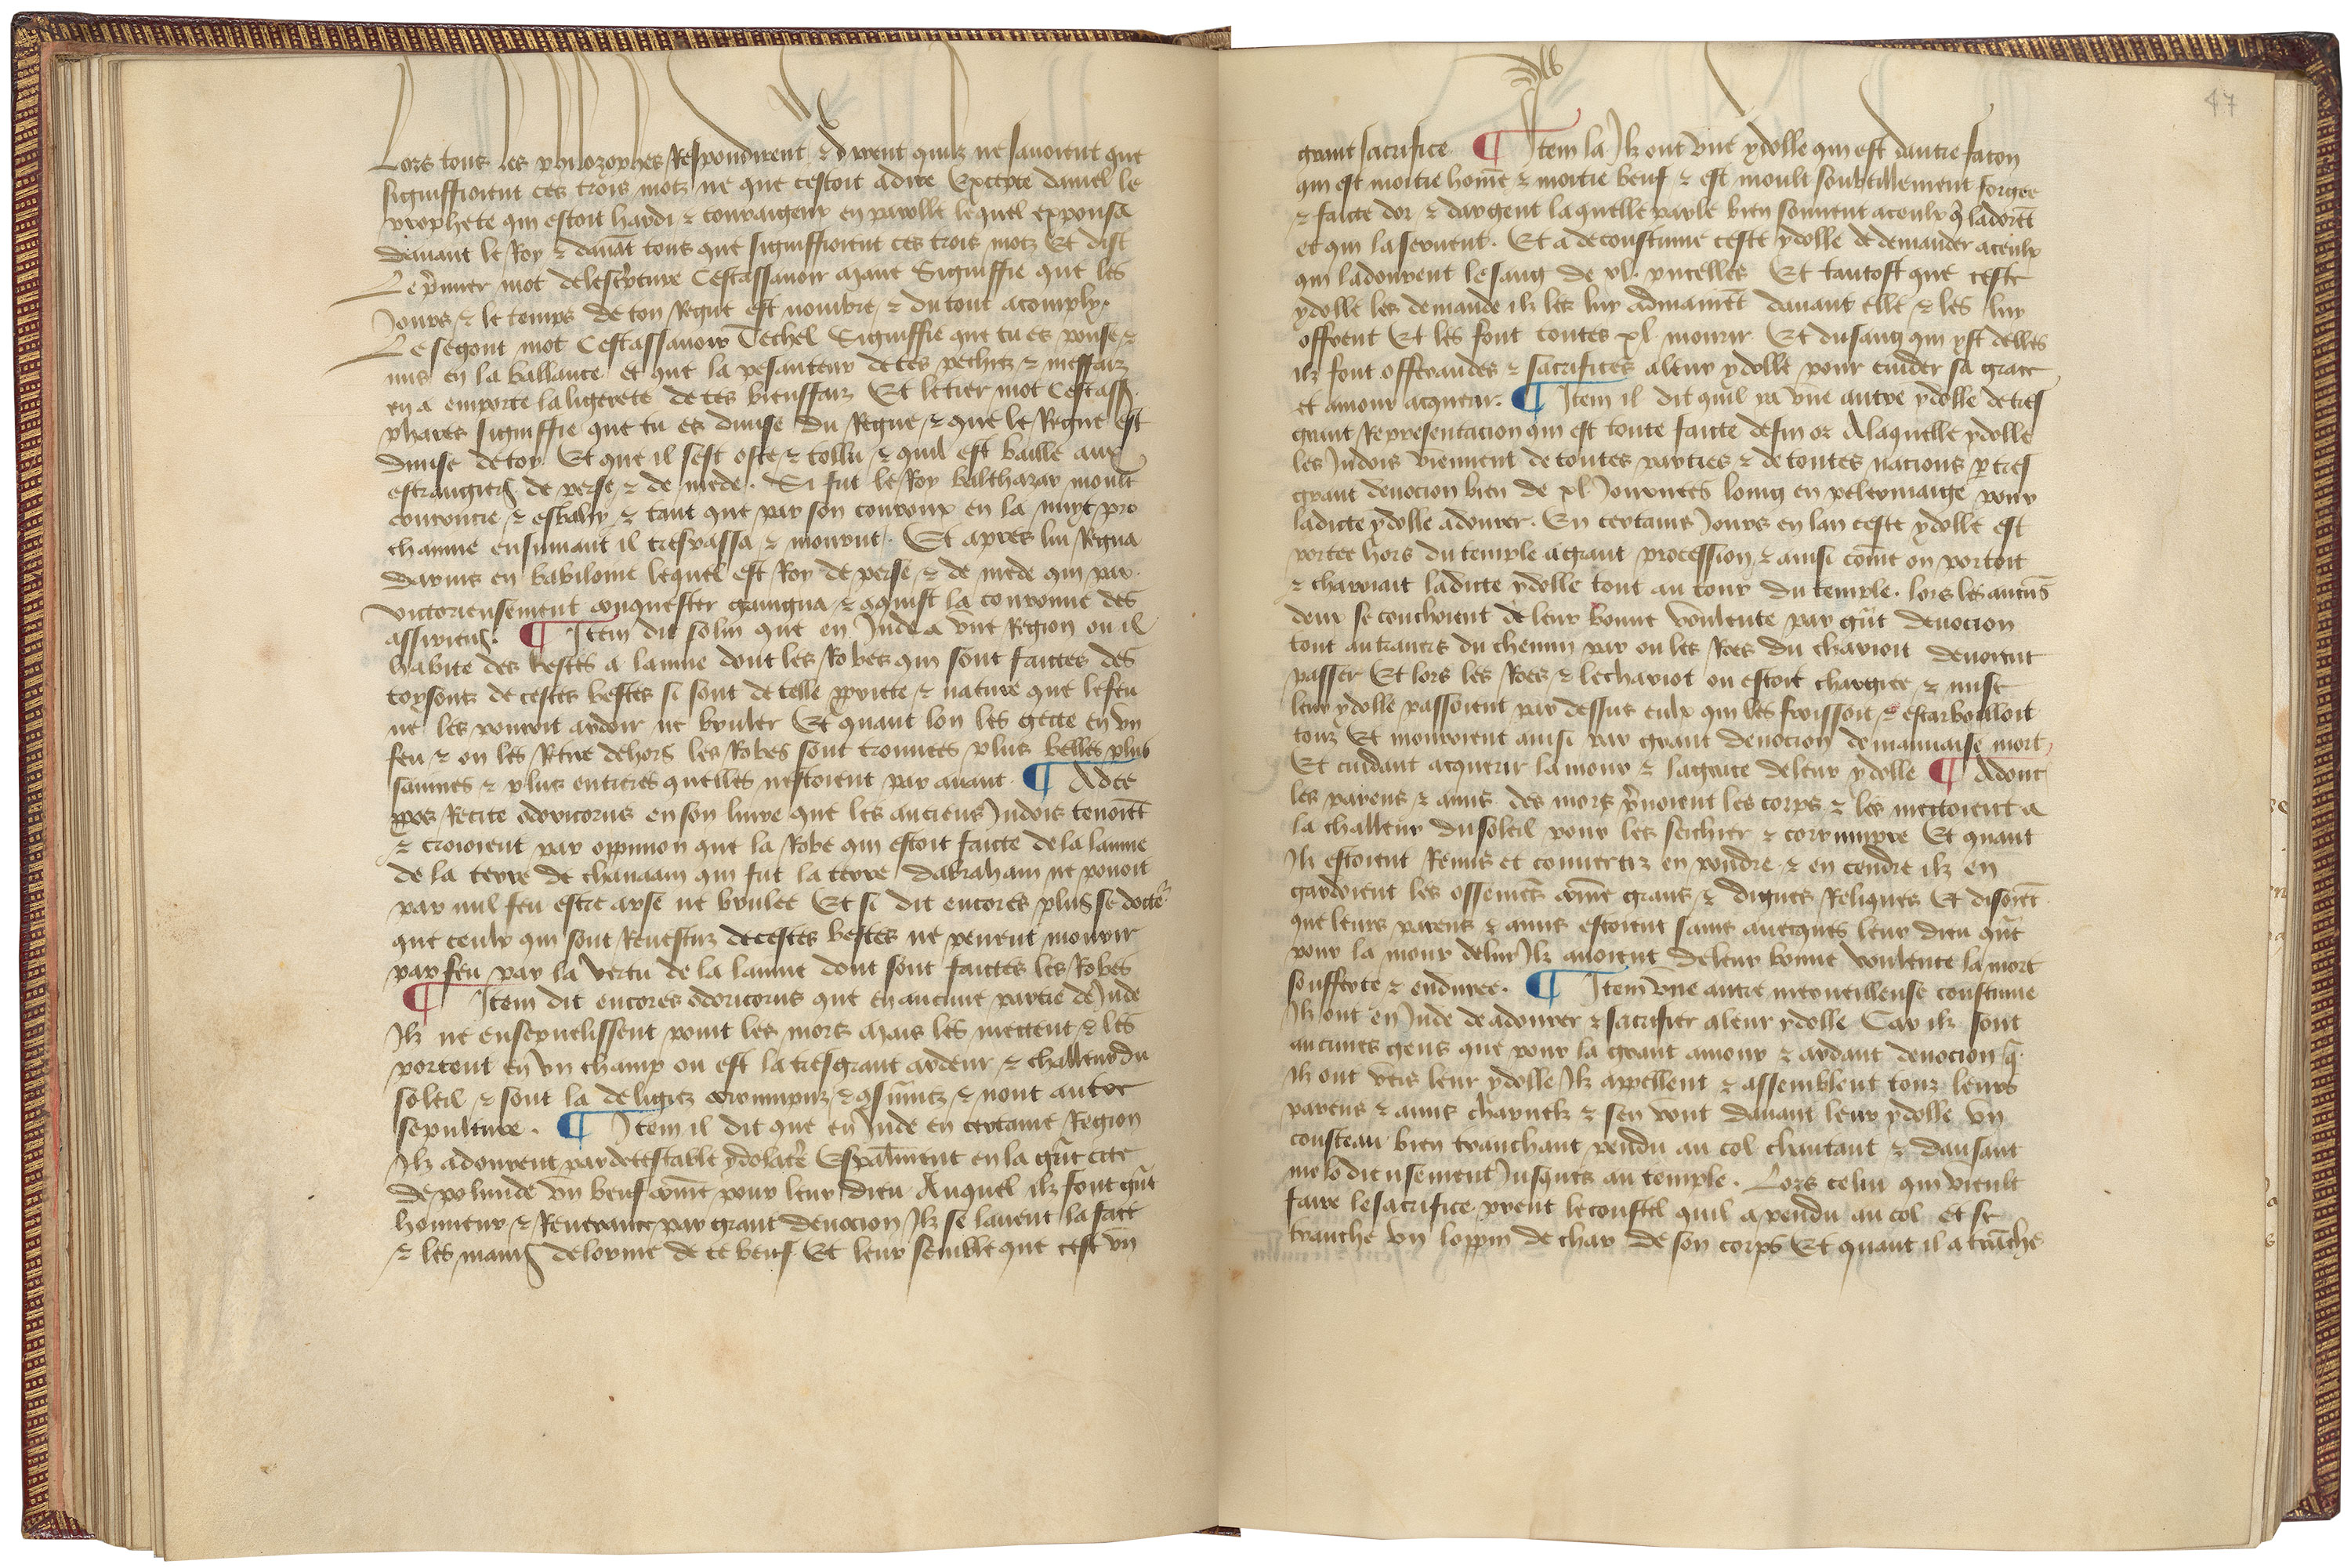 Lors tous les philozophes Respondirent & dirent quilz ne savoient que
signiffioient ces trois motz ne que cestoit adire Excepte daniel le
prophete qui estoit hardi & couraigeux en parolle lequel expousa
davant le Roy & davāt tous que signiffioient ces trois motz Et dist
Le p̄mier mot delescrpture Cestassavoir Mane Signiffie que les
Jours & le temps de ton Regne est nombre & du tout acomply.
Le segont mot Cestassavoir Techel Signiffie que tu es poise &
mis en la ballance et que la pesanteur de tes pechez & meffaiz
en a emporte la ligerete de tes bienffaiz Et le tier mot Cestass
phares signiffie que tu es divise du Regne & que le Regne est
divise de toy Et que il sest oste & tollu & quil est baille aux
estrangiers de perse & de mede. Si fut le Roy balthazar moult
couroucie & esbahy & tant que par son couroux en la nuyt pro
chaine ensuivant il trespassa & mourut. Et apres lui Regna
Darius en babiloine lequel est Roy de perse & de mede qui par
victorieusement conquester gaingna & aquist la couronne des
assiriens. ¶ Item dit solin que en Inde a vne Region ou il
habite des bestes a lainne dont les Robes qui sont faictes des
toysons de cestes bestes si sont de telle ꝓpriete & nature que le feu
ne les pouroit ardoir ne bruler Et quant lon les gecte en vn
feu & on les Retire dehors les Robes sont trouvees plus belles plus
sainnes & plus entieres quelles nestoient par avant. ¶ Adce
ꝓpos Recite odoricorus en son livre que les anciens Indois tenoiēt
& croioient par oppinion que la Robe qui estoit faicte de la lainne
de la terre de chanaam qui fut la terre dabraham ne pouoit
par nul feu estre arse ne brulee Et si dit encores plus se docte'
que ceulx qui sont Revestuz de cestes bestes ne peuent mourir
par feu par la vertu de la lainne dont sont faictes les Robes
¶ Item dit encores odoricorus que en aucune partie de Inde
Ilz ne ensepuelissent point les mors Mais les mettent & les
portent en vn champ ou est la tresgrant ardeur & challeur du
soleil & sont la de ligiez corrumpuz & ꝯsūmez & nont autre
sepulture. ¶ Item il dit que en Inde en certaine Region
Ilz adourent par detestable ydolatrie Espālment en la grāt cite
de polunde vn beuf cōme pour leur dieu Auquel ilz font grāt
honneur & Reverance par grant devocion Ilz se lavent la face
& les mains de lorine de ce beuf Et leur semble que cest vn
47
grant sacrifice ¶ Item la Ilz ont vne ydolle qui est dautre facon
qui est moitie hōme & moitie beuf & est moult soubtillement forgee
& faicte dor & dargent laquelle parle bien souuent aceulx q̄ ladorēt
et qui la seruent. Et a de coustume ceste ydolle de demander aceulx
qui ladourent le sang de xl. pucelles Et tantost que ceste
ydolle les demande ilz les luy admainēt davant elle & les luy
offrent Et les font toutes xl. mourir. Et du sang qui yst delles
ilz font offrandes & sacrifices aleur ydolle pour cuider sa grace
et amour acquerir. ¶ Item il dit quil ya vne autre ydolle de tres
grant Representacion qui est toute faicte de fin or Alaquelle ydolle
les Indois viennent de toutes parties & de toutes nacions p̄ tres
grant devocion bien de xl. Journees loing en pelermaige pour
ladicte ydolle adourer. En certains Jours en lan ceste ydolle est
portee hors du temple a grant procession & ainsi cōme on portoit
& charioit ladicte ydolle tout au tour du temple. lors les aucūs
deux se couchoient de leur bonne voulente par grāt devocion
tout au travers du chemin par ou les Roes du chariot devoient
passer Et lors les Roes & le chariot ou estoit chargee & mise
leur ydolle passoient par dessus eulx qui les froissoit & escarbouilloit
touz Et mouroient ainsi par grant devocion de mauvaise mort
Et cuidant acquerir lamour & lagrace de leur ydolle ¶ Adonc
les parens & amis des mors p̄noient les corps & les mettoient a
la challeur du soleil pour les seichier & corrumpre Et quant
Ilz estoient Remis et convertiz en pouldre & en cendre ilz en
gardoient les ossemēs cōme grans & dignes Reliques Et disoiēt
que leurs parens & amis estoient sains avecques leur dieu q̄
pour la mour de luy Ilz avoient de leur bonne voulente la mort
soufferte & enduree. ¶ Item vne autre merveilleuse coustume
Ilz ont en Inde de adourer & sacrifier aleur ydolle Car ilz sont
aucunes gens que pour la grant amour & ardant devocion q̄
ilz ont vers leur ydolle Ilz appellent & assemblent touz leurs
parens & amis charnelz & sen vont davant leur ydolle vn
cousteau bien tranchant pendu au col chantant & dansant
melodieusement Jusques au temple. Lors celui qui vieult
faire le sacrifice prent le coustel quil a pendu au col et se
tranche vn loppin de char de son corps Et quant il a trāche